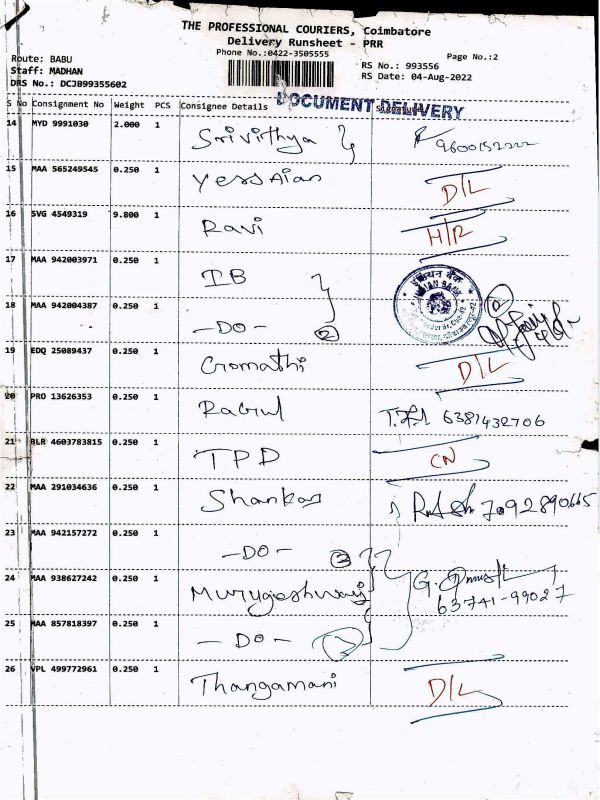 THE PROFESSIONAL COURIERS, Coimbatore
Delivery Runsheet - PRR
Phone No.:0422-3505555
Page No.:2
Route: BABU
Staff: MADHAN
DRS No.: DCJB99355602
RS No.: 993556
RS Date: 04-Aug-2022
DOCUMENT DELIVERY
S No Consignment No Weight PCS Consignee Details Signature
14 MYD 9991030 2.000 1 Srivithya 9600152222
15 MAA 565249545 0.250 1 D/L
16 SVG 4549319 9.800 1 Ravi H/R
17 MAA 942003971 0.250 1 IB
इंडियन बैंक
INDIAN BANK
18 MAA 942004387 0.250 1 -DO- 2
19 EDQ 25089437 0.250 1 Gomathi D/L
20 PRO 13626353 0.250 1 Ragul 6381432706
21 BLR 4603783815 0.250 1 TPD CN
22 MAA 291034636 0.250 1 Shankar 7092890665
23 MAA 942157272 0.250 1 -DO-
24 MAA 938627242 0.250 1 Murugeshwari G. 63741-99027
25 MAA 857818397 0.250 1 -DO-
26 VPL 499772961 0.250 1 Thangamani D/L